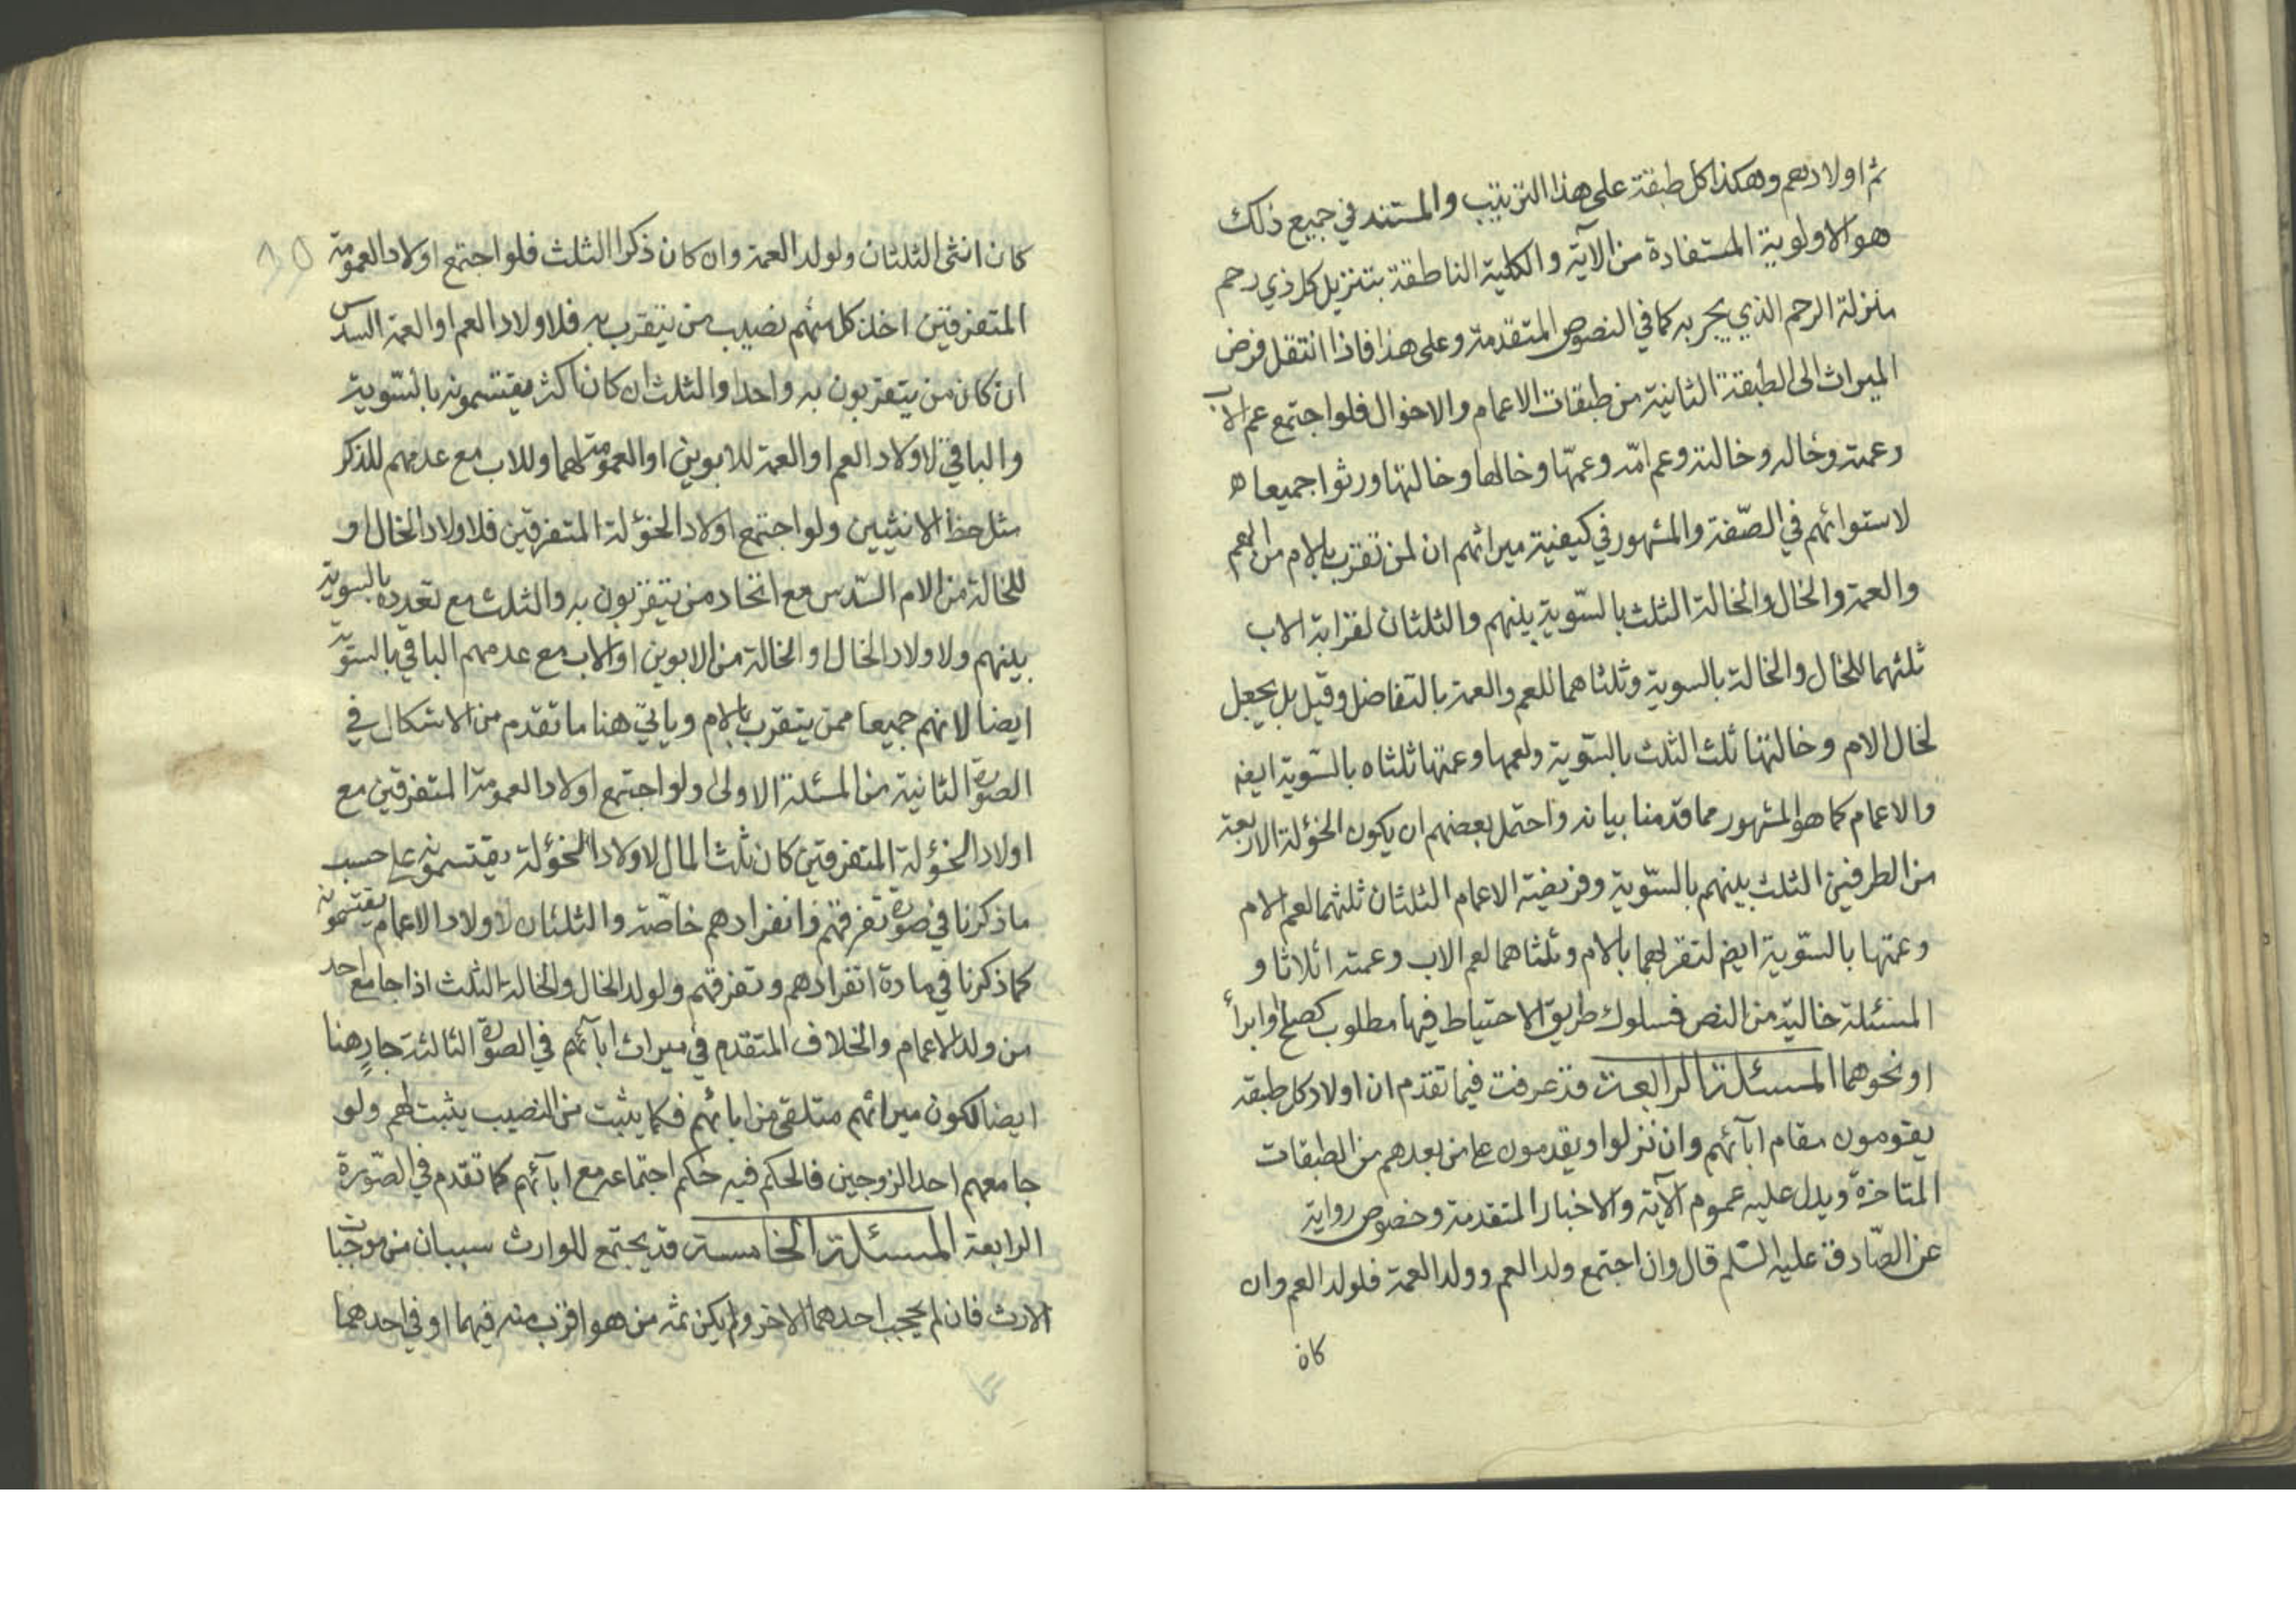 ثم اولادهم وهكذا كل طبقة على هذا الترتيب والمستند في جميع ذلك
هو الاولوية المستفادة من الآية والكلية الناطقة بتنزيل كل ذي رحم
منزلة الرحم الذي يجر به كما في النصوص المتقدمة وعلى هذا فاذا انتقل فرض
الميراث الى الطبقة الثانية من طبقات الاعمام والاخوال فلو اجتمع عم الاب
وعمته وخاله وخالته وعم امّه وعمّتها وخالها وخالتها ورثوا جميعا
لاستوائهم في الصّفة والمشهور في كيفية ميراثهم ان لمن تقرب بالام من العم
والعمة والخال والخالة الثلث بالسّوية بينهم والثلثان لقرابة الاب
ثلثهما للخال والخالة بالسوية وثلثاهما للعم والعمة بالتفاضل وقيل بل يجعل
لخال الام وخالتها ثلث الثلث بالسّوية ولعمها وعمتها ثلثاه بالسّوية ايضه
والاعمام كما هو المشهور مما قدمنا بيانه واحتمل بعضهم ان يكون الخؤلة الاربعة
من الطرفين الثلث بينهم بالسّوية وفريضة الاعمام الثلثان ثلثهما لعم الام
وعمتها بالسّوية ايضا لتقربهما بالام وثلثاهما لعم الاب وعمته اثلاثا و
المسئلة خالية من النص فسلوك طريق الاحتياط فيها مطلوب كصلح او ابرأ
او نحوهما المسئلة الرابعة قد عرفت فيما تقدم ان اولاد كل طبقة
يقومون مقام ابآئهم وان نزلوا ويقدمون على من بعدهم من الطبقات
المتاخرة ويدل عليه عموم الآية والاخبار المتقدمة وخصوص رواية
عن الصّادق عليه السّلم قال وان اجتمع ولد العم وولد العمة فلولد العم وان
كان
كان انثى الثلثان ولولد العمة وان كان ذكرا الثلث فلو اجتمع اولاد العمومة
المتفرقين اخذ كل منهم نصيب من يتقرب به فلاولاد العم او العمة السدس
ان كان من يتقربون به واحدا والثلث ان كان اكثر يقتسمونه بالسّوية
والباقي لاولاد العم او العمة للابوين او العمومة لهما وللاب مع عدمهم للذكر
مثل حظ الانثيين ولو اجتمع اولاد الخؤلة المتفرقين فلاولاد الخال او
للخالة من الام السّدس مع اتحاد من يتقربون به والثلث مع تعدده بالسوية
بينهم ولاولاد الخال او الخالة من الابوين او الاب مع عدمهم الباقي بالسوية
ايضا لانهم جميعا ممن يتقرب بالام وياتي هنا ما تقدم من الاشكال في
الصورة الثانية من المسئلة الاولى ولو اجتمع اولاد العمومة المتفرقين مع
اولاد الخؤلة المتفرقين كان ثلث المال لاولاد الخؤلة يقتسمونه على حسب
ما ذكرنا في صورة تفرقهم وانفرادهم خاصّة والثلثان لاولاد الاعمام يقتسمونه
كما ذكرنا في مادة انفرادهم وتفرقهم ولولد الخال والخالة الثلث اذا جامع احد
من ولد الاعمام والخلاف المتقدم في ميراث ابآئهم في الصورة الثالثة جارٍ هنا
ايضا لكون ميراثهم متلقى من ابائهم فكما يثبت من النصيب يثبت لهم ولو
جامعهم احد الزوجين فالحكم فيه حكم اجتماعه مع ابآئهم كما تقدم في الصّورة
الرابعة المسئلة الخامسة قد يجتمع للوارث سببان من موجبات
الارث فان لم يحجب احدهما الاخر ولم يكن ثمه من هو اقرب منه فيهما او في احدهما